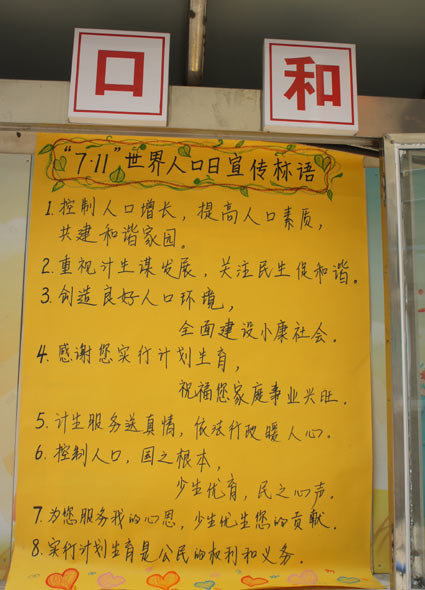 口 和
“7·11”世界人口日宣传标语
1. 控制人口增长，提高人口素质，
共建和谐家园。
2. 重视计生谋发展，关注民生促和谐。
3. 创造良好人口环境，
全面建设小康社会．
4. 感谢您实行计划生育，
祝福您家庭事业兴旺．
5. 计生服务送真情，依法行政暖人心．
6. 控制人口，国之根本，
少生优育，民之心声．
7. 为您服务我的心愿，少生优生您的贡献．
8. 实行计划生育是公民的权利和义务．